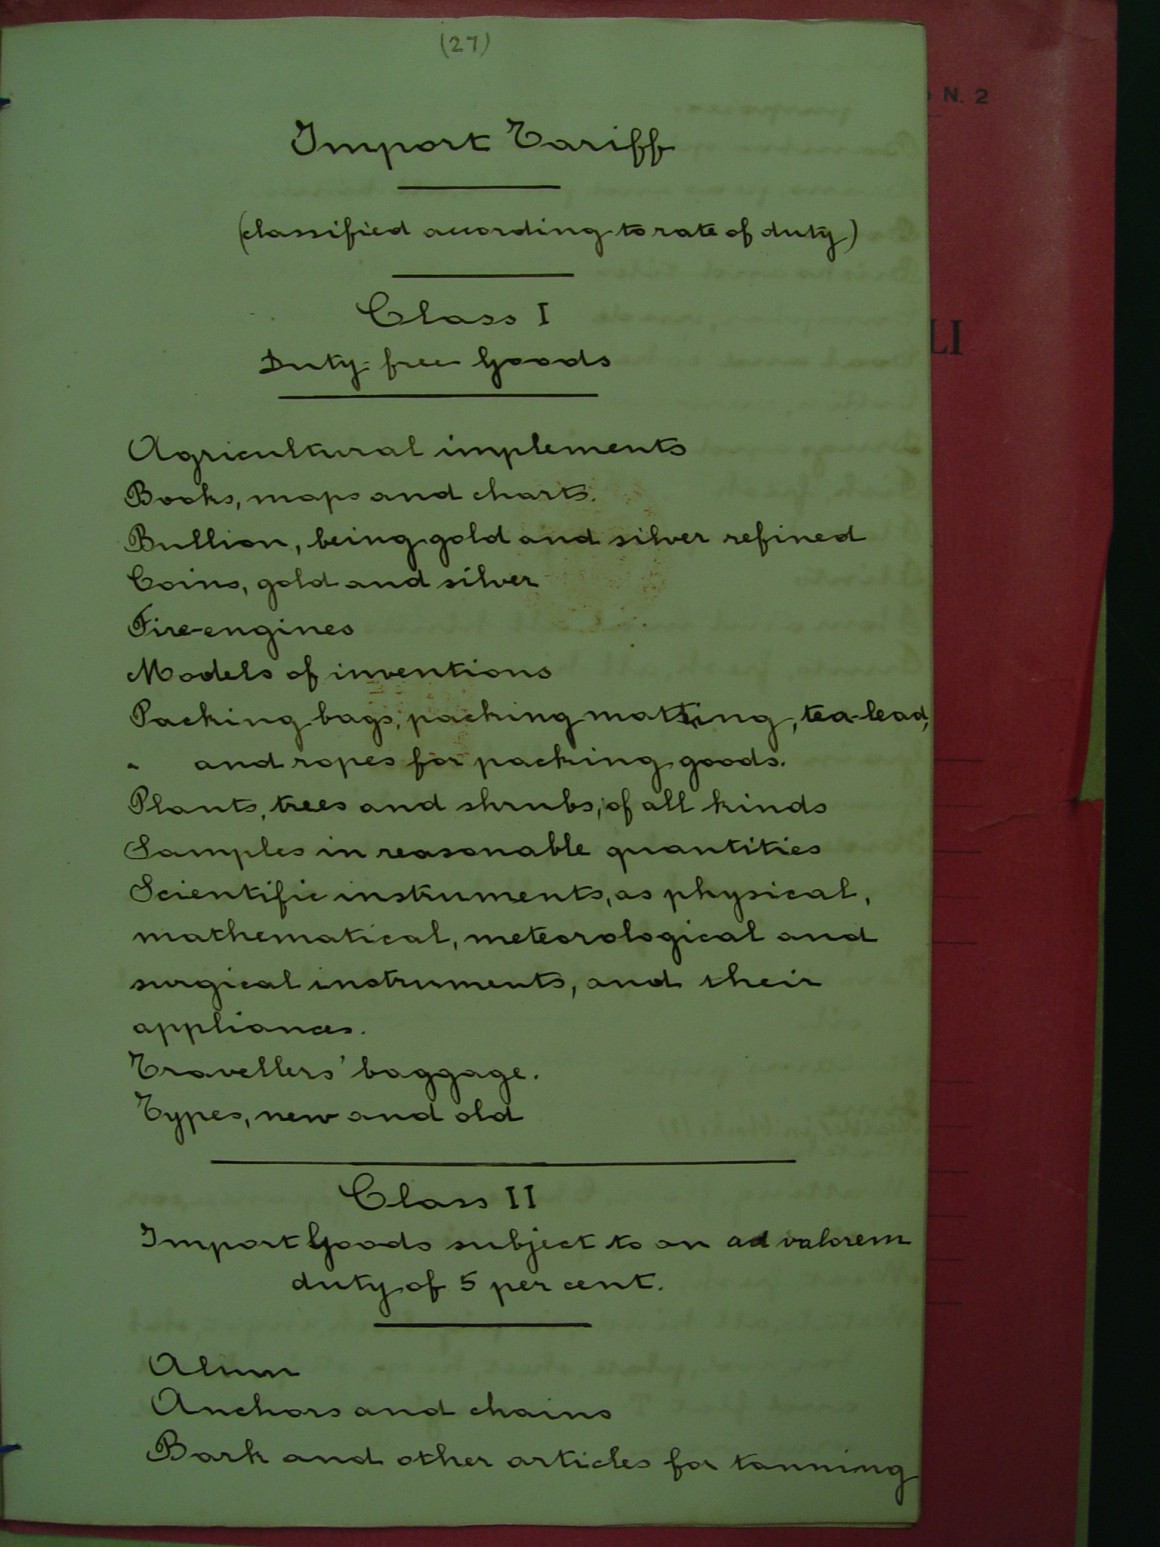 (27)
Import Tariff
(classified according to rate of duty)
Class I
Duty free Goods
Agricultural implements
Books, maps and charts.
Bullion, being gold and silver refined
Coins, gold and silver
Fire-engines
Models of inventions
Packing bags, packing matting, tea-lead,
" and ropes for packing goods.
Plants, trees and shrubs, of all kinds
Samples in reasonable quantities
Scientific instruments, as physical,
mathematical, meteorological and
surgical instruments, and their
appliances.
Travellers' baggage.
Types, new and old
Class II
Import Goods subject to an ad valorem
duty of 5 per cent.
Alum
Anchors and chains
Bark and other articles for tanning
N. 2
LI